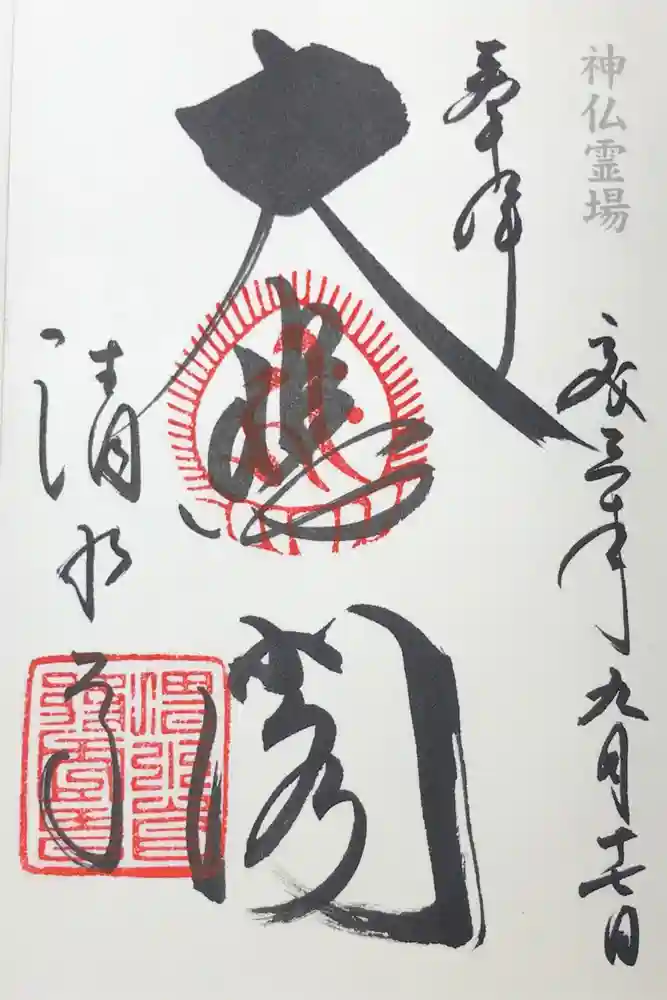 神仏霊場
令三年九月十七日
奉拝
大悲閣
清水寺